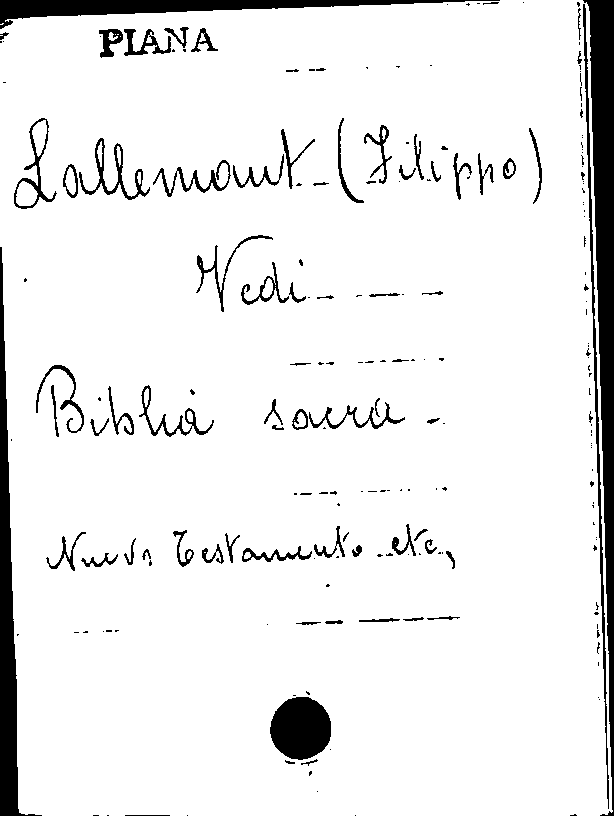 PIANA
Lallemant (Filippo)
Vedi
Biblia sacra -
Nuovo Testamento etc,